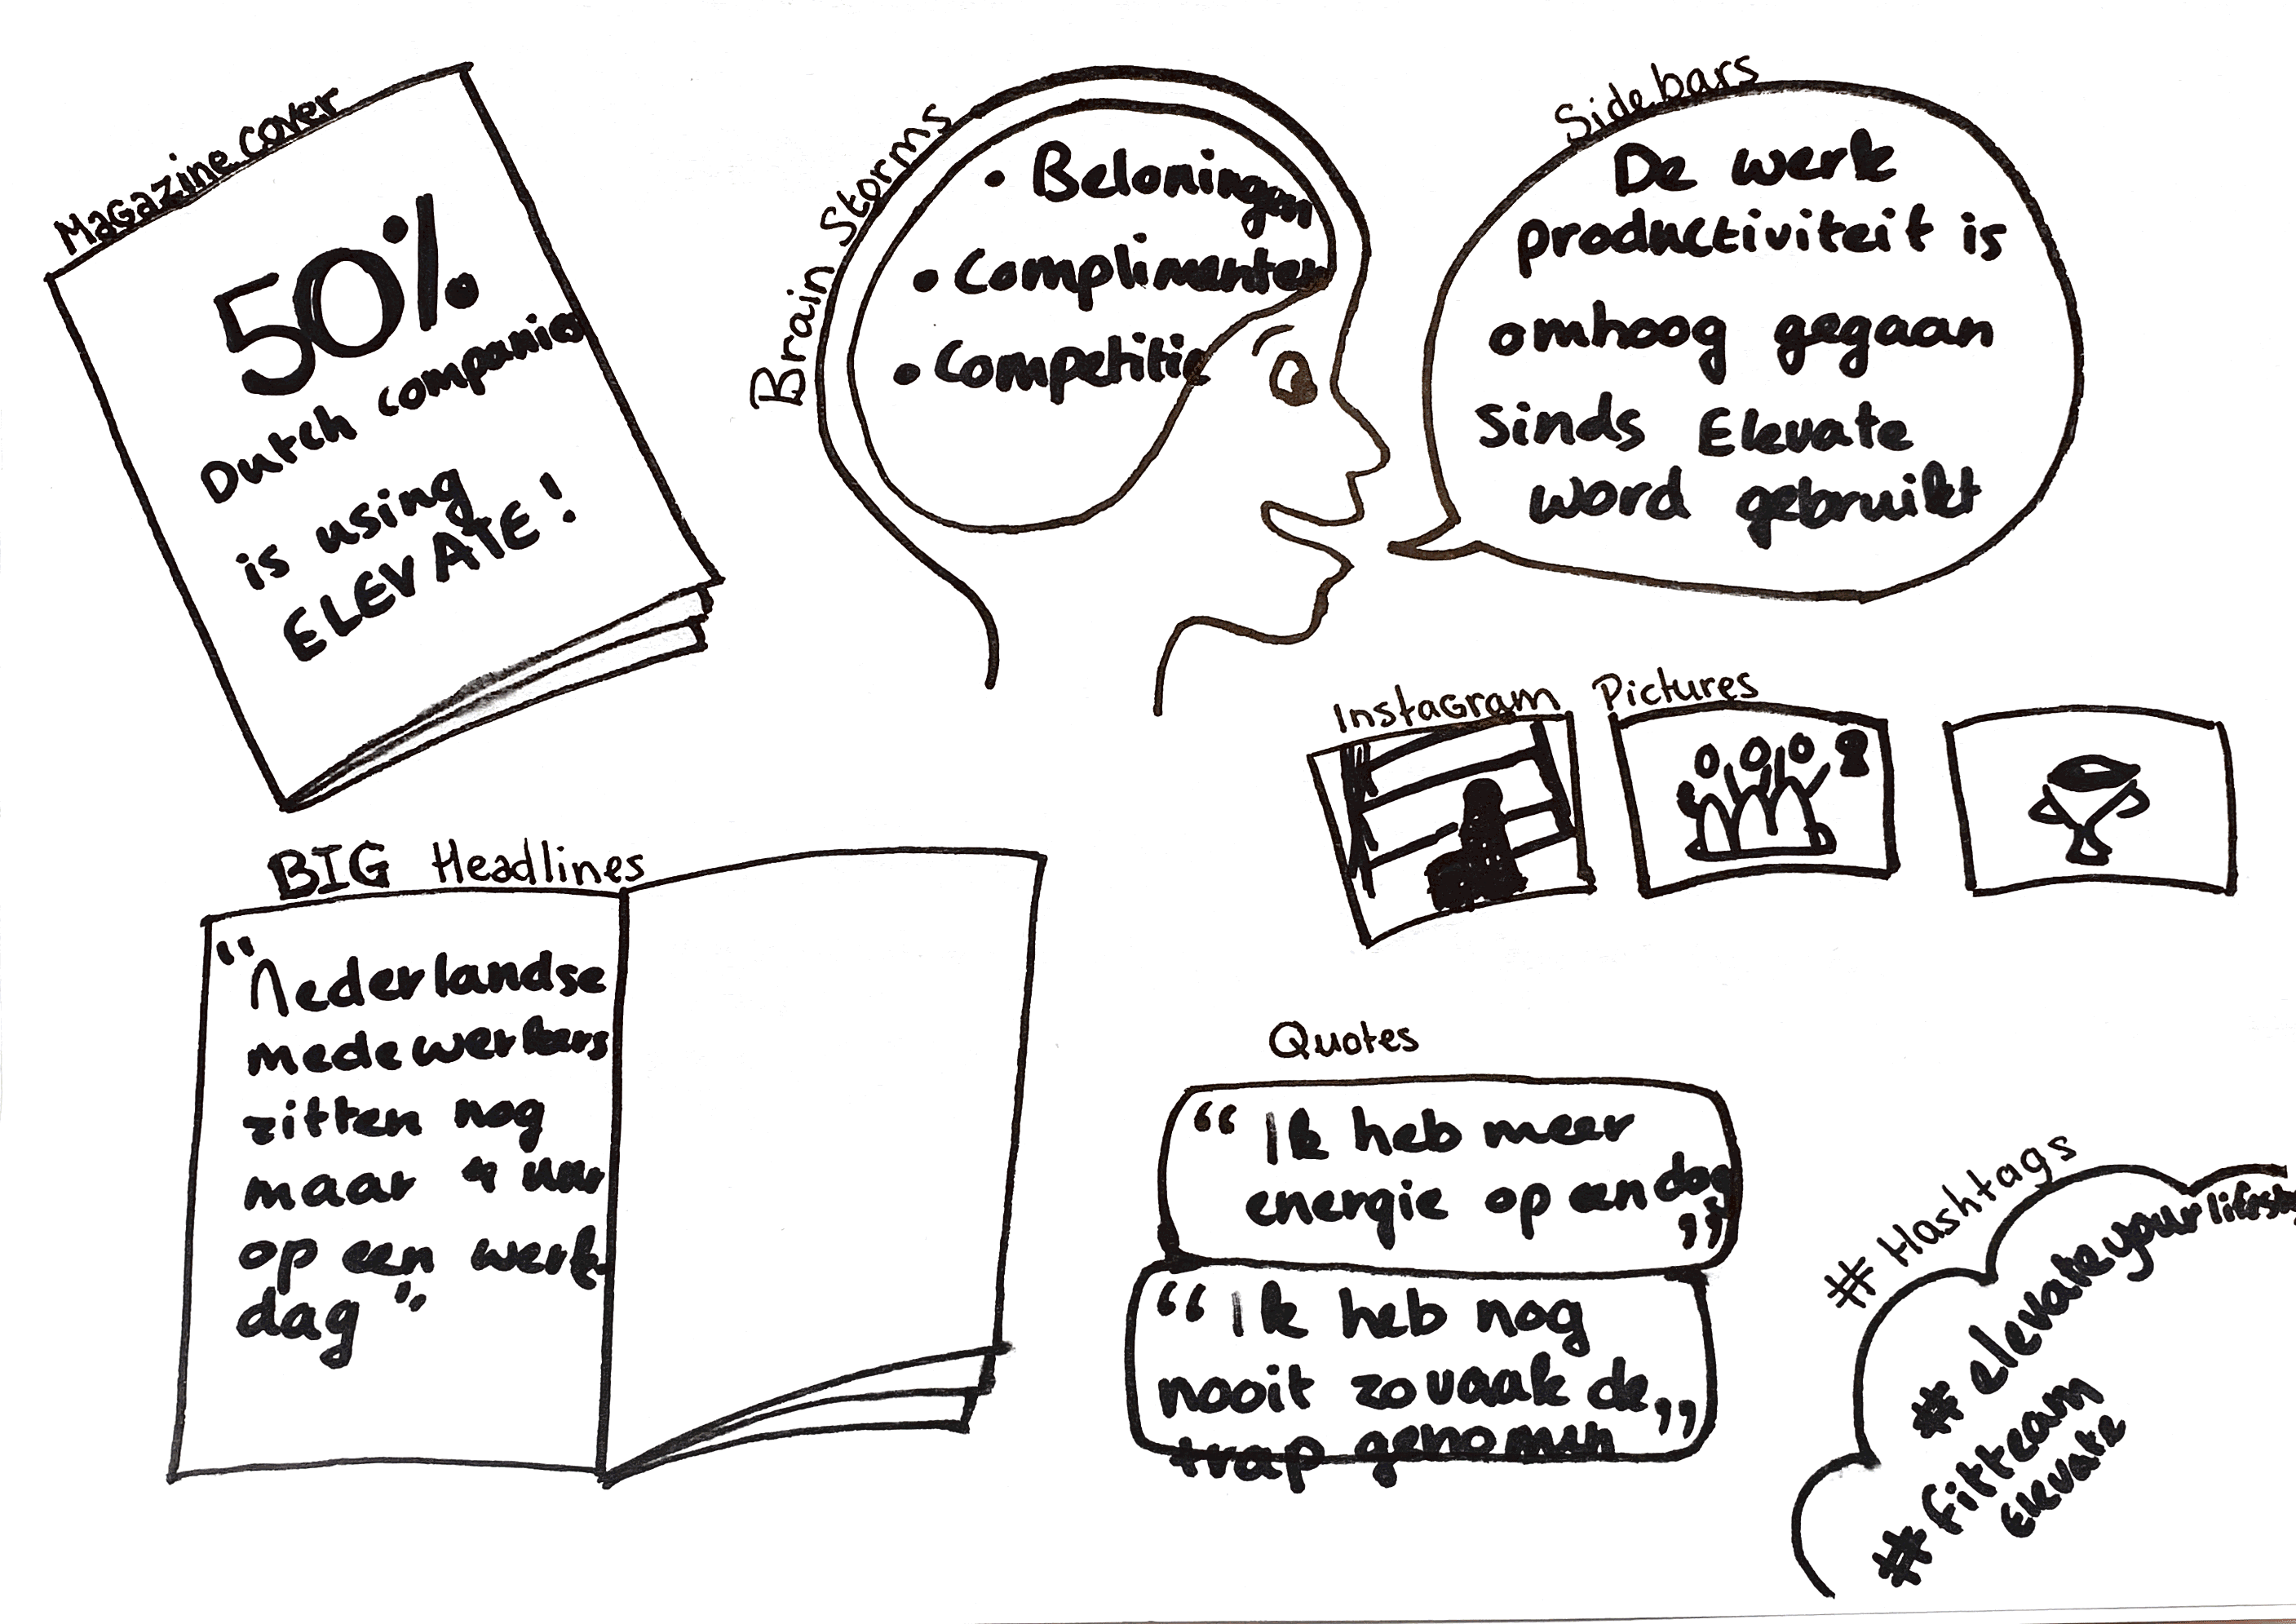 Magazine cover
50%
Dutch companies
is using
ELEVATE!
Brain Storms
• Beloningen
• Complimenten
• Competitie
Sidebars
De werk
productiviteit is
omhoog gegaan
sinds Elevate
word gebruikt
Instagram Pictures
BIG Headlines
"Nederlandse
medewerkers
zitten nog
maar 4 uur
op een werk-
dag"
Quotes
“Ik heb meer
energie op een dag
”
“Ik heb nog
nooit zo vaak de
trap genomen”
# Hashtags
#elevateyourlifesty
#fitteam
Elevate